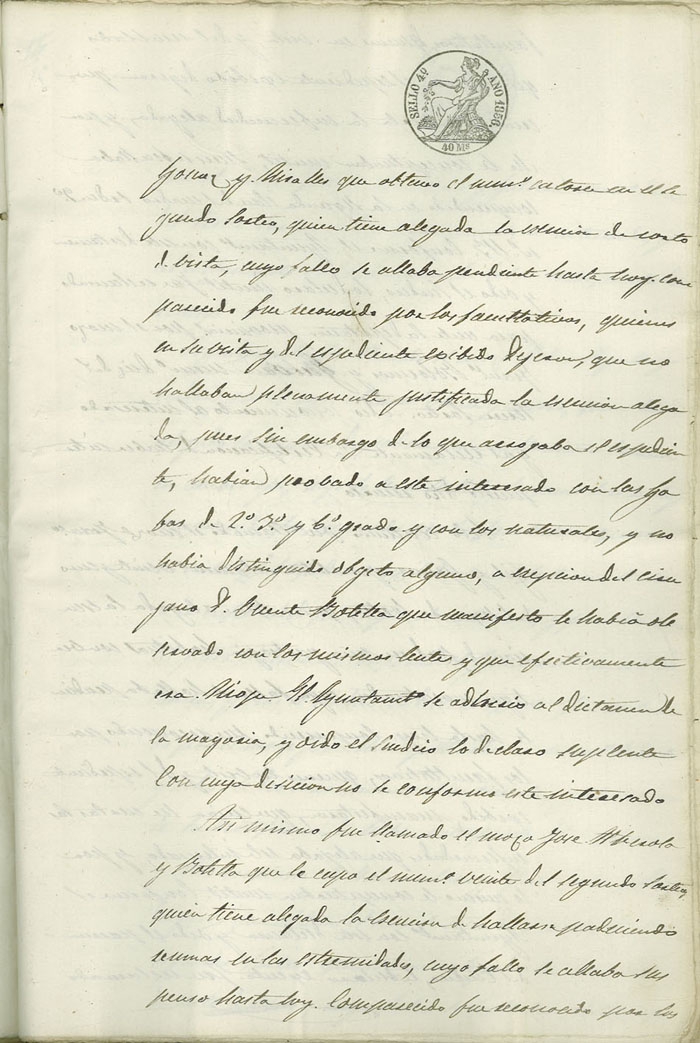 SELLO 4º AÑO 1856.
40 Ms
y Miralles que obtuvo el numº catorce en el se
gundo Sorteo, quien tiene alegada la esencion de corto
de vista, cuyo fallo se allaba pendiente hasta hoy. Com
parecido fue reconocido por los facultativos, quienes
en su vista y del espediente exibido dijeron, que no
hallaban plenamente justificada la esencion alega
da, pues sin embargo de lo que arrogaba el espedien
te, habian probado a este interesado con las ga
fas de 2º 3º y 6º grado y con los naturales, y no
habia distinguido objeto alguno, a esepcion del ciru
jano D. Vicente Botella que manifesto le habia ob
servado con los mismos lentes y que efectivamente
era Miope. El Ayuntamtº se adhirio al dictamen de
la mayoria, y oido el Sindico lo declaro suplente
Con cuya disicion no se conformo este interesado
Asi mismo fue llamado el mozo Jose
y Botella que le cupo el numº veinte del segundo Sorteo,
quien tiene alegada la esencion de hallarse padeciendo
reumas en las estremidades, cuyo fallo se allaba sus
penso hasta hoy. Comparecido fue reconocido por los